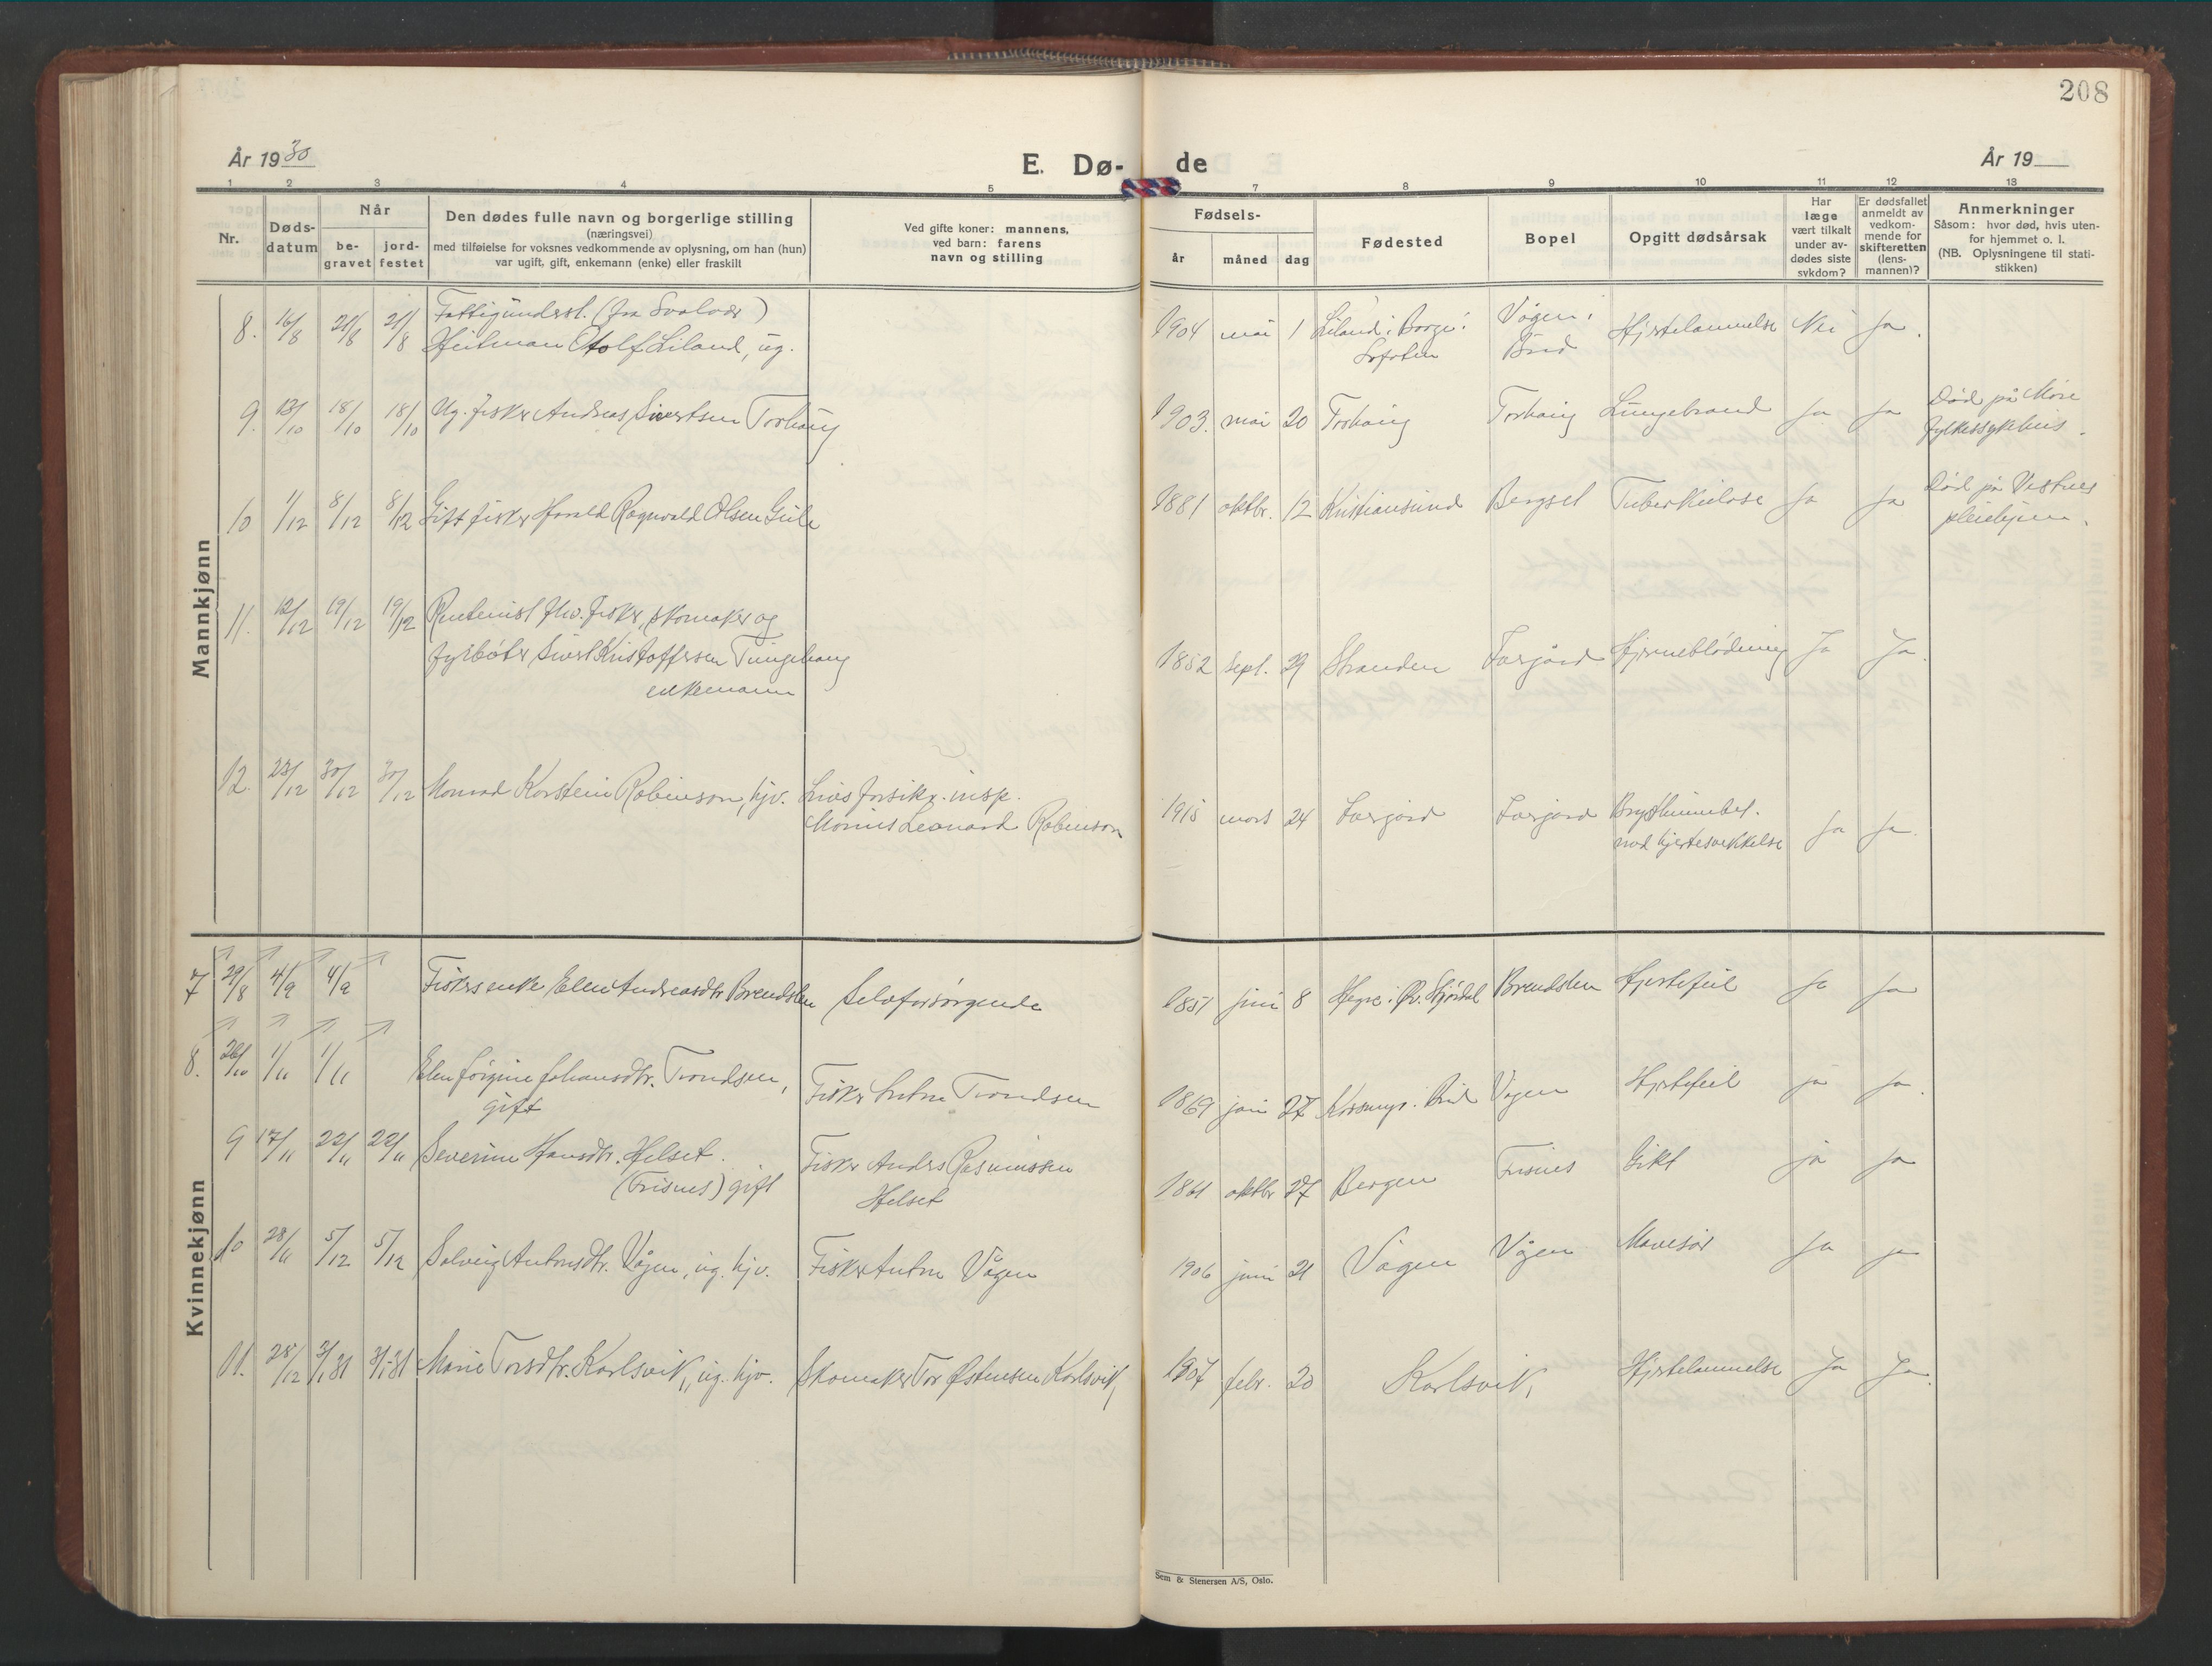 208
År 1930
E. Dø-
de
År 19
1 2 3 4 5
7 8 9 10 11 12 13
Nr.
Døds-
datum
Når
be-
gravet
jord-
festet
Den dødes fulle navn og borgerlige stilling
(næringsvei)
med tilføielse for voksnes vedkommende av oplysning, om han (hun)
var ugift, gift, enkemann (enke) eller fraskilt
Ved gifte koner: mannens,
ved barn: farens
navn og stilling
Fødsels-
år måned dag
Fødested
Bopel
Opgitt dødsårsak
Har
læge
vært tilkalt
under av-
dødes siste
sykdom?
Er dødsfallet
anmeldt av
vedkom-
mende for
skifteretten
(lens-
mannen)?
Anmerkninger
Såsom: hvor død, hvis uten-
for hjemmet o. l.
(NB. Oplysningene til stati-
stikken)
Mannkjønn
8. 16/8 21/8 21/8 Fattigunderst. (fra Svolvær)
Heitman Otolf Liland, ug.
1904 mai 1 Liland i Borge i
Lofoten
Vågen i
Bud
Hjertelammelse Nei Ja.
9. 13/10 18/10 18/10 Ug. fisker Andreas Sivertsen Torhaug
1903. mai 20 Torhaug Torhaug Lungebrand Ja Ja
Død på Møre
fylkessykehus.
10 1/12 8/12 8/12 Gift fisker Harald Ragnvald Olsen Gule
1881 oktbr. 12 Kristiansund Bergset Tuberkulose Ja Ja
Død på Vestnes
pleiehjem.
11. 12/12 19/12 19/12 Rentenist fhv. fisker, skomaker og
fyrbøter Sivert Kristoffersen Tungehaug
enkemann
1852 Sept. 29 Stranden Farjord Hjerneblødning Ja Ja.
12. 23/12 30/12 30/12 Monrad Korstein Robinson, hjv. Livsforsikr. insp.
Monius Leonard Robinson
1915 mars 24 Farjord Farjord Brysthinnebet.
med hjertesvekkelse
Ja Ja.
Kvinnekjønn
7 29/8 4/9 4/9 Fiskersenke Elen Andreasdtr Brendslen Selvforsørgende
1851 juni 8 Hegre i Ø. Stjørdal Brendslen Hjertefeil Ja Ja
8. 26/10 1/11 1/11 Elen Jørgine Johansdtr. Trondsen,
gift
Fisker Anton Trondsen
1869 juni 27 Korsmyr i Bud Vågen Hjertefeil ja Ja.
9 17/11 22/11 22/11 Severine Hansdtr. Helset.
(Frisnes) gift
Fisker Anders Rasmussen
Helset
1861 oktbr 27 Bergen Frisnes Gikt ja Ja
10 28/11 5/12 5/12 Solveig Antonsdtr. Vågen, ug. hjv. Fisker Anton Vågen
1906 juni 21 Vågen Vågen Mavesår Ja ja
11. 28/12 3/1 31 3/1-31 Marie Torsdtr. Karlsvik, ug. hjv. Skomaker Tor Østensen Karlsvik,
1907 febr. 20 Karlsvik, Hjertelammelse Ja Ja.
Sem & Stenersen A/S, Oslo.